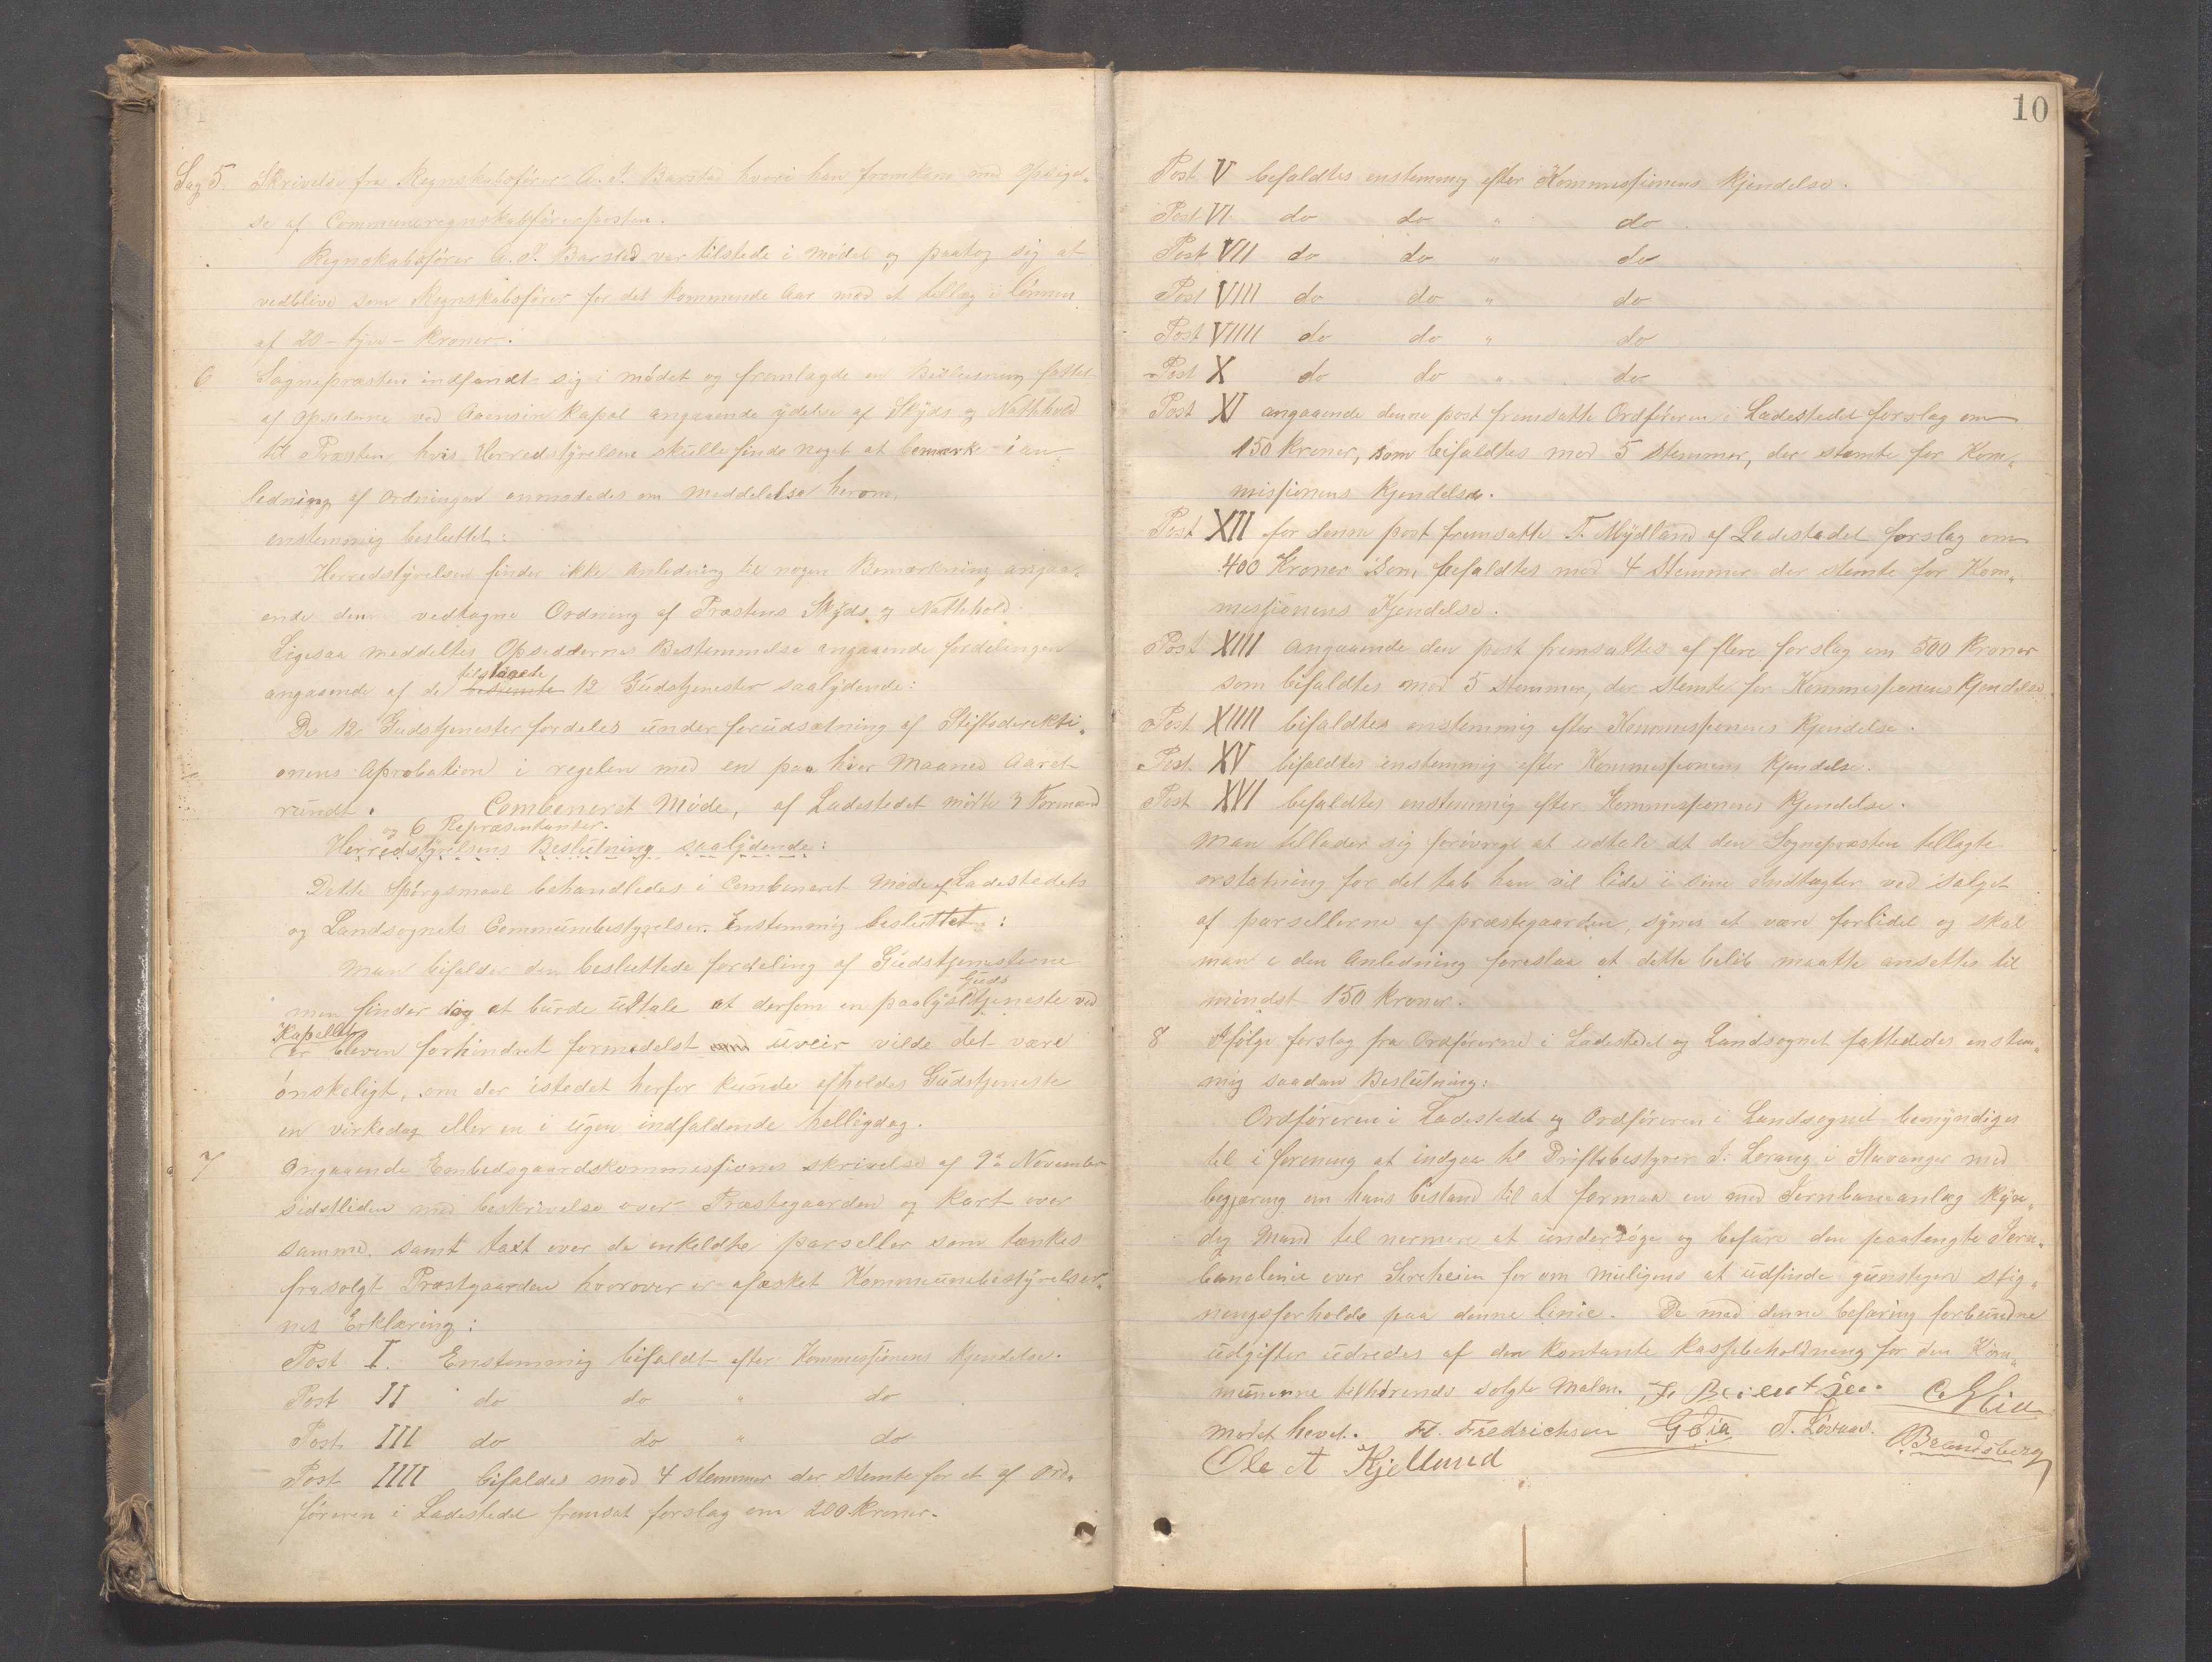 Sag 5. Skrivelse fra Regnskabsfører A. P. Barstad hvori han fremkom med Opsigel-
se af Communeregnskabsførerposten.
Regnskabsfører A. P. Barstad var tilstede i mødet og paatog sig at
vedblive som Regnskabsfører for det kommende Aar med et tillæg i lönnen
af 20 - tyve - Kroner.
6 Sognepræsten indfandt sig i mödet og fremlagde en Beslutning fattet
af Opsidderne ved Aaensire Kapel angaaende ydelse af Skyds og Nattehold
til Præsten, hvis Herredstyrelsen skulle finde noget at bemærke i an-
ledning af Ordningen anmodedes om Meddelelse herom.
enstemmig besluttet:
Herredstyrelsen finder ikke Anledning til nogen Bemærkning angaa-
ende den vedtagne Ordning af Præstens Skyds og Nattehold.
Ligesaa meddeltes Opsiddernes Bestemmelse angaaende fordelingen
tilstaaede
angaaende af de bestemte 12 Gudstjenester saalydende:
De 12 Gudstjenester fordeles under forudsætning af Stiftsdirekti-
onens Aprobation i regelen med en paa hver Maaned Aaret
rundt. Combineret Möde, af Ladestedet mötte 3 Formænd
og 6 Repræsentanter.
Herredstyrelsens Beslutning saalydende:
Dette Spörgsmaal behandledes i Combineret Möde af Ladestedets
og Landsognets Communebestyrelser. Enstemmig besluttet:
Man bifalder den besluttede fordeling af Gudstjenesterne
Guds
men finder dog at burde udtale at dersom en paalyst tjeneste ved
Kapellet
er bleven forhindret formedelst uveir vilde det være
önskeligt, om der istedet herfor kunde afholdes Gudstjeneste
en virkedag eller en i ugen indfaldende helligdag.
7 Angaaende Embedsgaardskommissionens skrivelse af 9de November
sidstleden med beskrivelse over Præstegaarden og Kart over
samme. samt taxt over de enkeldte parseller som tænkes
frasolgt Præstgaarden hvorover er afæsket Kommunebestyrelser-
nes Erklæring:
Post I. Enstemmig bifaldt efter Kommissionens Kjendelse.
Post II do do " do
Post III do do " do
Post IIII bifaldes med 4 stemmer der stemte for et af Ord-
föreren i Ladestedet fremsat forslag om 200 Kroner.
10
Post V befaldtes enstemmig efter Kommissionens Kjendelse.
Post VI do do " do
Post VII do do " do
Post VIII do do " do
Post VIIII do do " do
Post X do do " do
Post XI angaaende denne post fremsatte Ordföreren i Ladestedet forslag om
150 Kroner, som bifaldtes med 5 stemmer, der stemte for Kom-
missionens Kjendelse.
Post XII for denne post fremsatte T. Mydland af Ladestedet forslag om
400 Kroner som befaldtes med 4 stemmer der stemte for Kom-
missionens Kjendelse.
Post XIII angaaende den post fremsattes af flere forslag om 500 Kroner
som bifaldtes med 5 stemmer, der stemte for Kommissionens Kjendelse
Post XIIII bifaldtes enstemmig efter Kommissionens Kjendelse.
Post XV bifaldtes enstemmig efter Kommissionens Kjendelse.
Post XVI bifaldtes enstemmig efter Kommissionens Kjendelse.
Man tillader sig forövrigt at udtale at den Sognepræsten tillagte
erstatning for det tab han vil lide i sine Indtægter ved salget
af parsellerne af præstegaarden, synes at være forlidet og skal
man i den Anledning foreslaa at dette belöb maatte ansættes til
mindst 150 Kroner.
8 Ifölge forslag fra Ordförerne i Ladestedet og Landsognet fattededes enstem-
mig saadan Beslutning:
Ordföreren i Ladestedet og Ordföreren i Landsognet bemyndiges
til i forening at indgaa til Driftsbestyrer J. Lorang i Stavanger med
begjæring om hans bistand til at formaa en med Jernbaneanlæg kyn-
dig Mand til nermere at undersöge og befare den paatengte Jern-
banelinie over Sireheien for om muligens at udfinde gunstigere stig-
ningsforholde paa denne linie. De med denne befaring forbundne
udgifter udredes af den kontante Kassebeholdning for den Kom-
munerne tilhörende solgte Malm.
mödet hevet. Fr. Fredrichsen G Eia T. Lövaas.
Ole A Kjellund